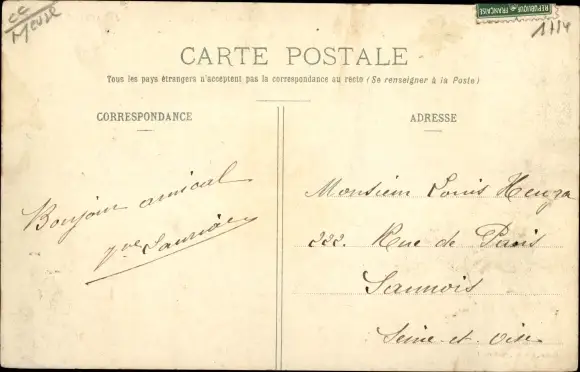 CC
Meuse
RÉPUBLIQUE FRANÇAISE
CARTE POSTALE
Tous les pays étrangers n'acceptent pas la correspondance au recto (Se renseigner à la Poste)
CORRESPONDANCE
Bonjour amical
ADRESSE
Monsieur Louis
222. Rue de Paris
Sannois
Seine-et-Oise